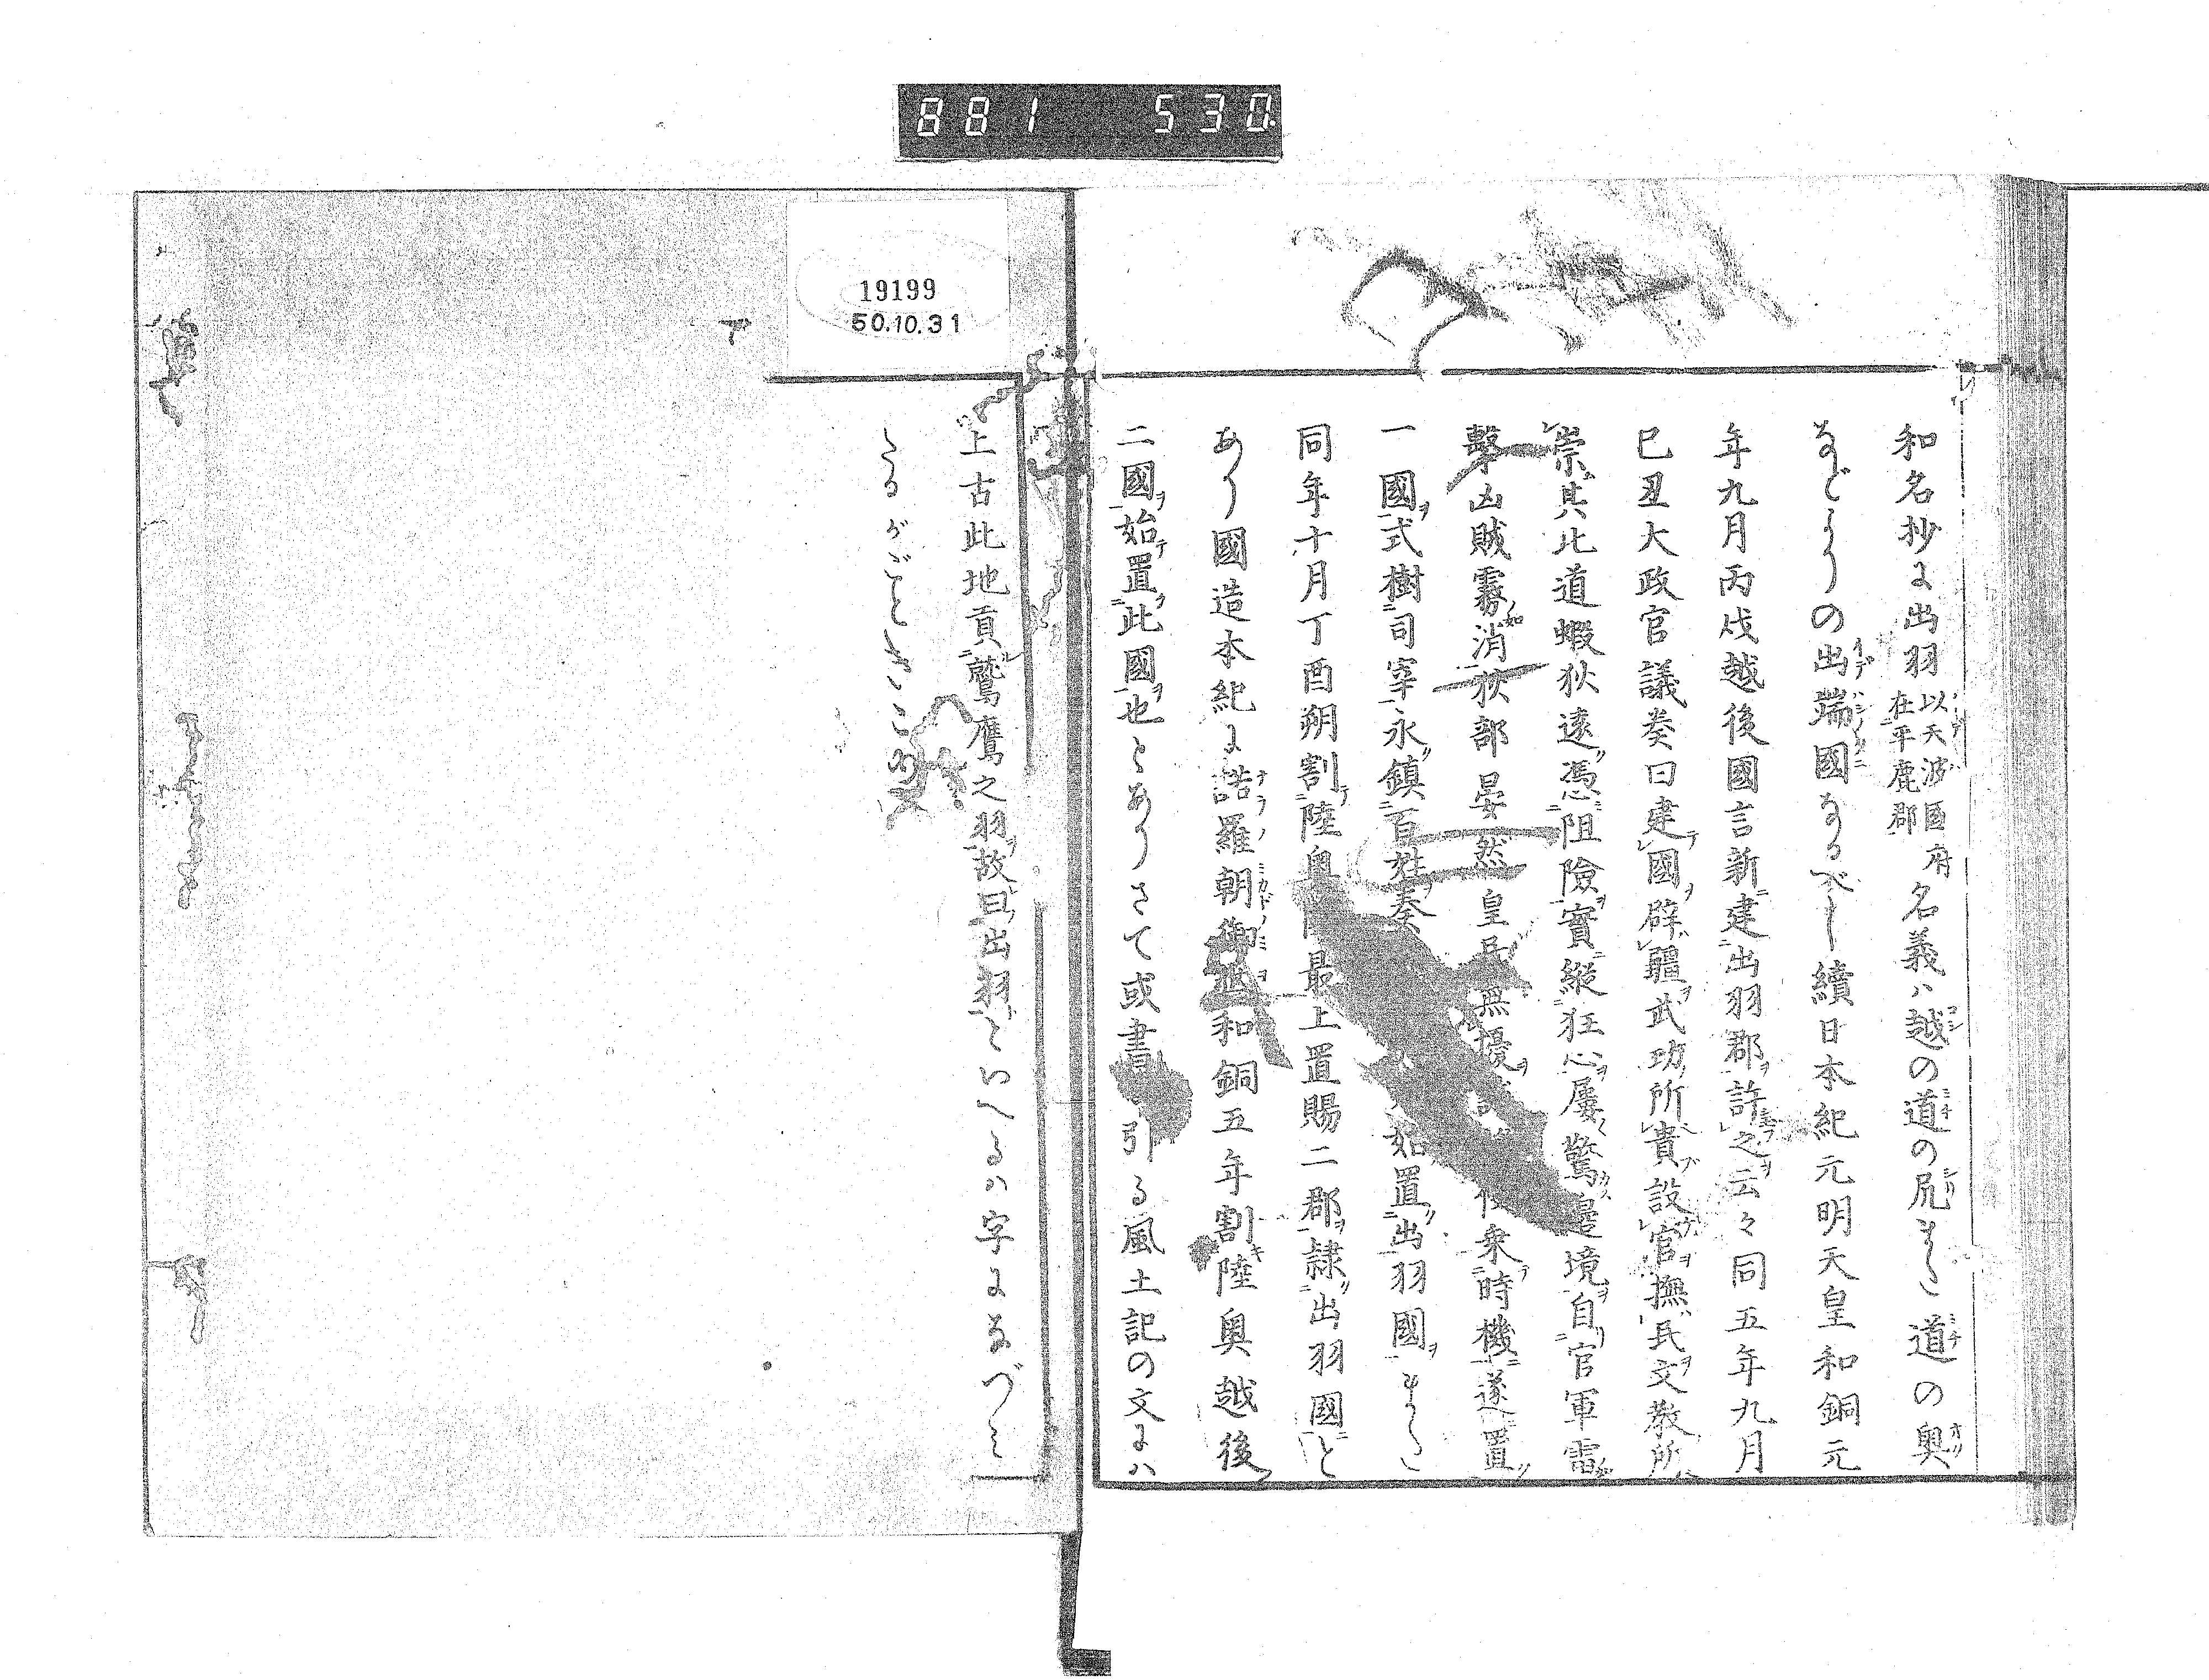 881 530
和名抄に出羽以天波國府在平鹿郡名義ハ越の道の尻また道の奥
などよりの出端國なるべし續日本紀元明天皇和銅元
年九月丙戌越後國言新建出羽郡許之云々同五年九月
巳丑大政官議奏曰建國辟疆武功所貴設官撫民文教所
崇其北道蝦狄遠憑阻險實縱狂心屡驚邊境自官軍雷
擊凶賊霧消狄部晏然皇民無擾 衆時機遂置
一國式樹司宰永鎮百姓奏 如置出羽國また
同年十月丁酉朔割陸奥 最上置賜二郡隷出羽國と
あり國造本紀に諾羅朝御 和銅五年割陸奥越後
二國始置此國也とありさて或書 引る風土記の文にハ
19199
50.10.31
上古此地貢鷲鷹之羽故曰出羽といへるハ字になづみ
たるがごとき